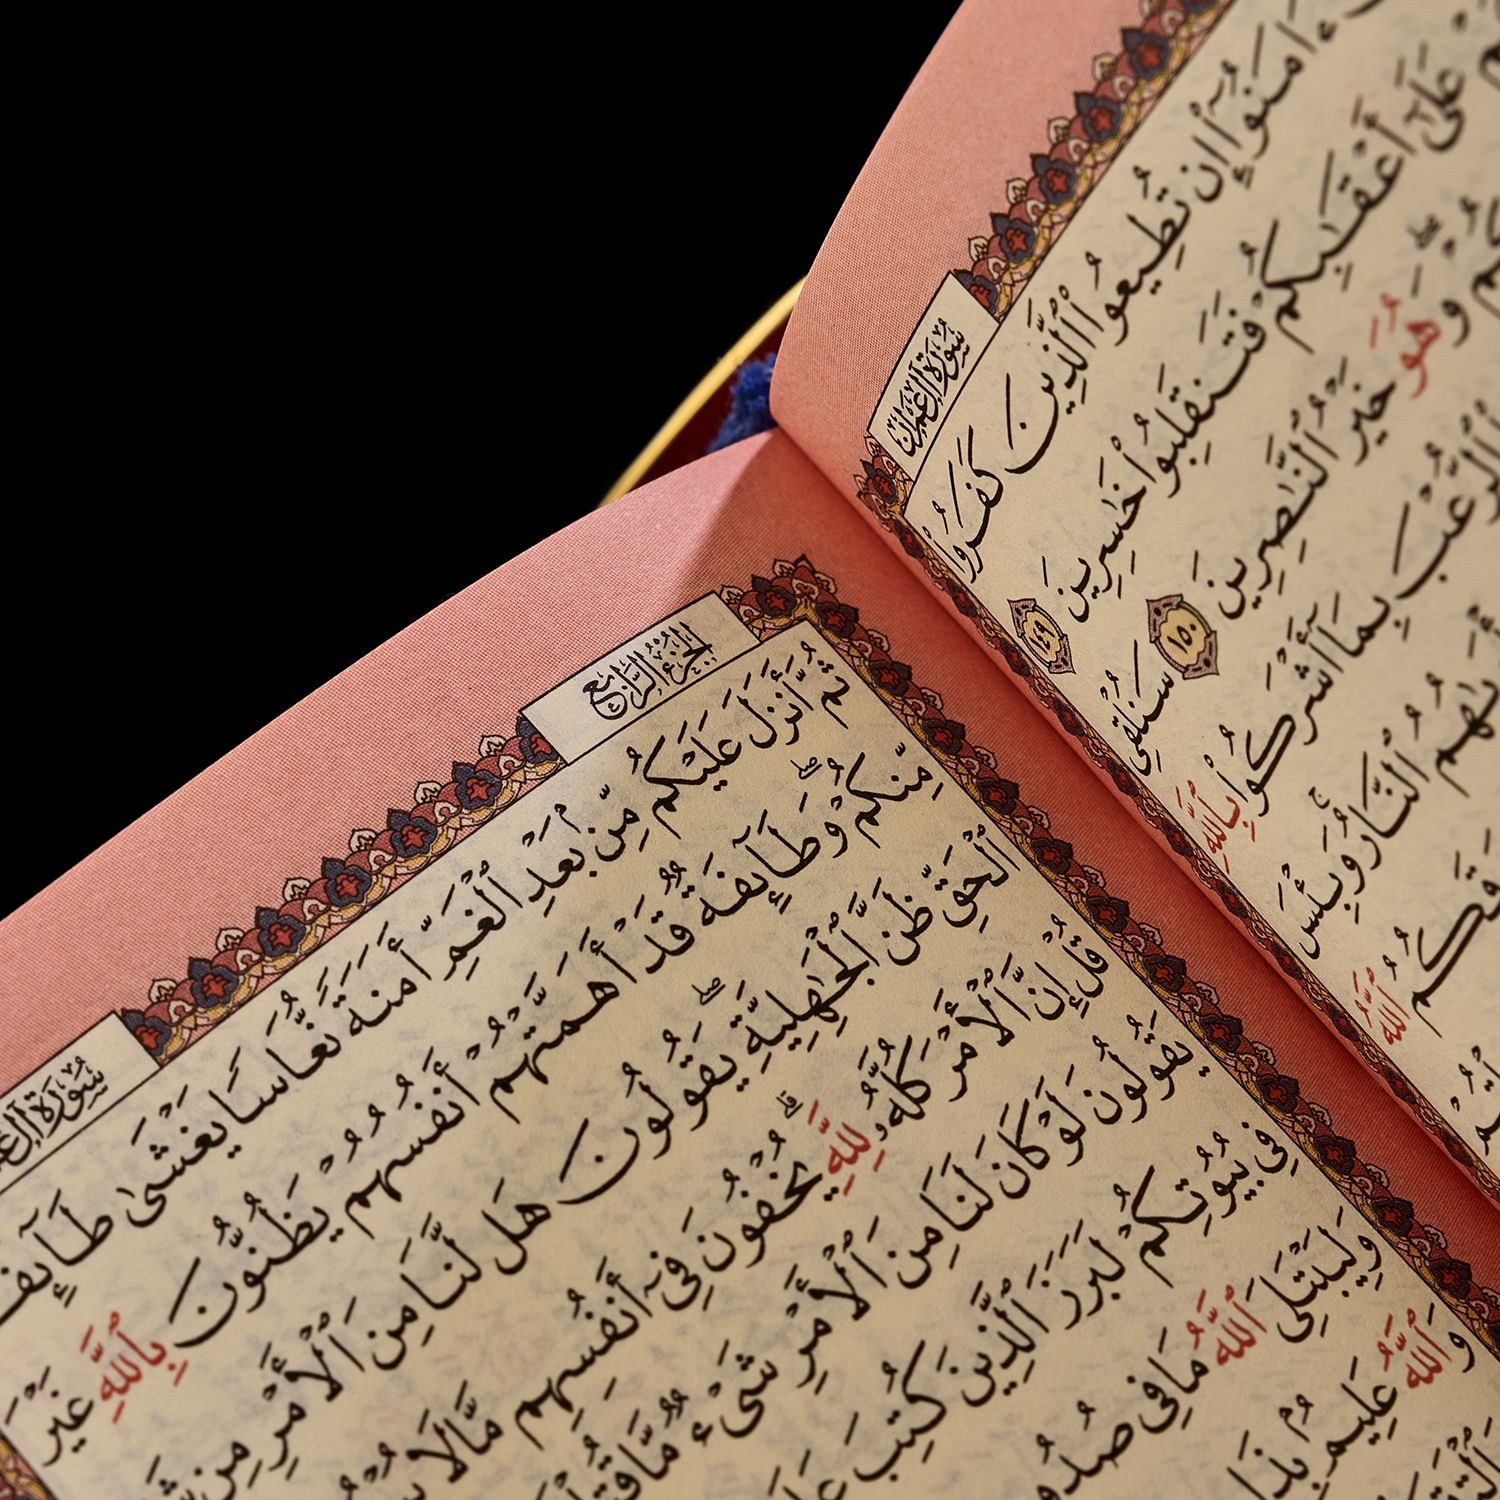 سُورَةُ آلِ عِمْرَانَ
ءَامَنُوٓا۟ إِن تُطِيعُوا۟ ٱلَّذِينَ كَفَرُوا۟
عَلَىٰٓ أَعْقَـٰبِكُمْ فَتَنقَلِبُوا۟ خَـٰسِرِينَ ١٤٩
وَهُوَ خَيْرُ ٱلنَّـٰصِرِينَ ١٥٠ سَنُلْقِى
ٱلرُّعْبَ بِمَآ أَشْرَكُوا۟ بِٱللَّهِ
ٱلنَّارُ وَبِئْسَ
ٱللَّهُ
الجُزْءُ الرَّابِعُ
سُورَةُ آلِ
ثُمَّ أَنزَلَ عَلَيْكُم مِّنۢ بَعْدِ ٱلْغَمِّ أَمَنَةً نُّعَاسًا يَغْشَىٰ
مِّنكُمْ ۖ وَطَآئِفَةٌ قَدْ أَهَمَّتْهُمْ أَنفُسُهُمْ يَظُنُّونَ بِٱللَّهِ غَيْرَ
ٱلْحَقِّ ظَنَّ ٱلْجَـٰهِلِيَّةِ ۖ يَقُولُونَ هَل لَّنَا مِنَ ٱلْأَمْرِ مِن
قُلْ إِنَّ ٱلْأَمْرَ كُلَّهُۥ لِلَّهِ ۗ يُخْفُونَ فِىٓ أَنفُسِهِم مَّا لَا
يَقُولُونَ لَوْ كَانَ لَنَا مِنَ ٱلْأَمْرِ شَىْءٌ مَّا
فِى بُيُوتِكُمْ لَبَرَزَ ٱلَّذِينَ كُتِبَ
وَلِيَبْتَلِىَ ٱللَّهُ مَا فِى
وَٱللَّهُ عَلِيمٌۢ